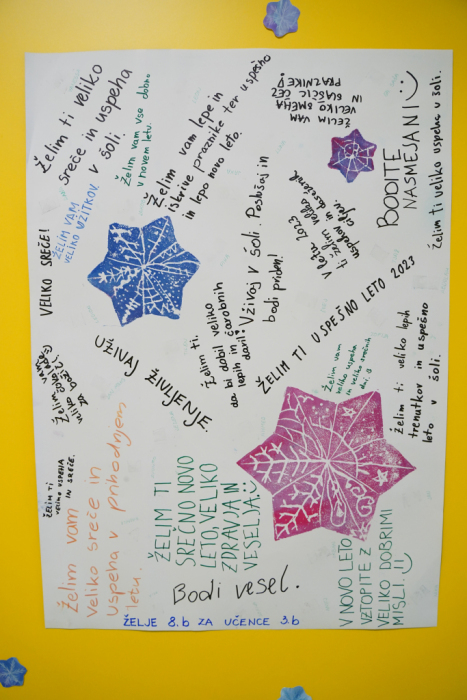 Želim ti veliko
sreče in uspeha
v šoli.
Želim vam vse dobro
v novem letu.
ŽELIM VAM
VELIKO UŽITKOV.
Želim vam lepe in
iskrive praznike ter uspešno
in lepo novo leto.
ŽELIM VAM
VELIKO SMEHA
IN SLAŠČIC ČEZ
PRAZNIKE!
BODITE
NASMEJANI
Želim ti veliko uspeha v šoli.
VELIKO SREČE!
Uživaj v šoli. Poslušaj in
bodi priden!
V letu 2023
ti želim veliko
uspehov
ŽELIM TI USPEŠNO LETO 2023
Želim ti,
da bi dobil veliko
lepih in čarobnih
daril.
UŽIVAJ ŽIVLJENJE.
Želim vam
veliko uspeha
in veliko srečnih
dni.
Želim ti veliko lepih
trenutkov in uspešno
leto v šoli.
ŽELIM TI
VELIKO USPEHA
IN SREČE.
Želim vam
veliko sreče in
uspeha v prihodnjem
letu.
ŽELIM TI
SREČNO NOVO
LETO, VELIKO
ZDRAVJA IN
VESELJA.
Bodi vesel.
V NOVO LETO
VZTOPITE Z
VELIKO DOBRIMI
MISLI.
ŽELJE 8.b ZA UČENCE 3.b